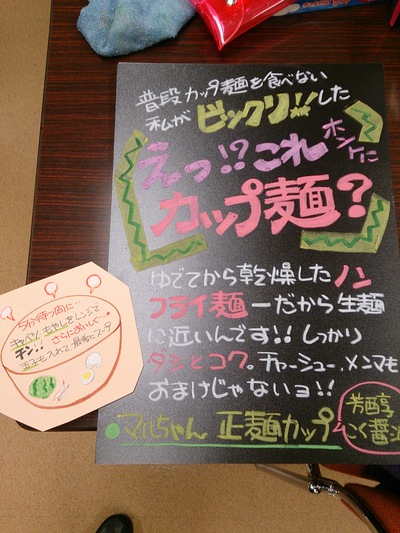 普段カップ麺を食べない
私がビックリ!!した
えっ!?これ
ホントに
カップ麺?
ゆでてから乾燥したノン
フライ麺ーだから生麺
に近いんです!!しかり
ダシとコク。チャーシュー、メンマも
おまけじゃないョ!!
マルちゃん 正麺カップ
芳醇
こく醤油
5分待つ間に…
キャベツ、もやしをレンジで
チン!!さらにおいしく
玉子も入れて最高にヌーダ